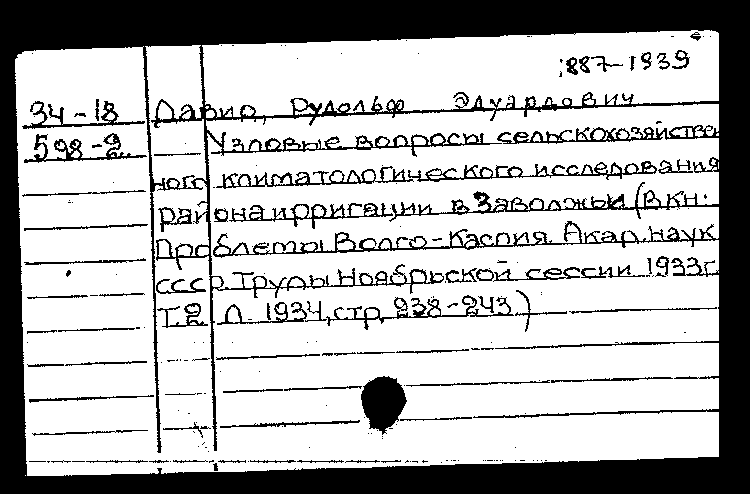 1887-1939
34-18 Давид, Рудольф Эдуардович
598-2 Узловые вопросы сельскохозяйствен
ного климатологического исследования
района ирригации в Заволжьи (В кн.
Проблемы Волго-Каспия. Акад. наук
СССР. Труды Ноябрьской сессии 1933г.
Т.2 Л. 1934, стр. 238-243)